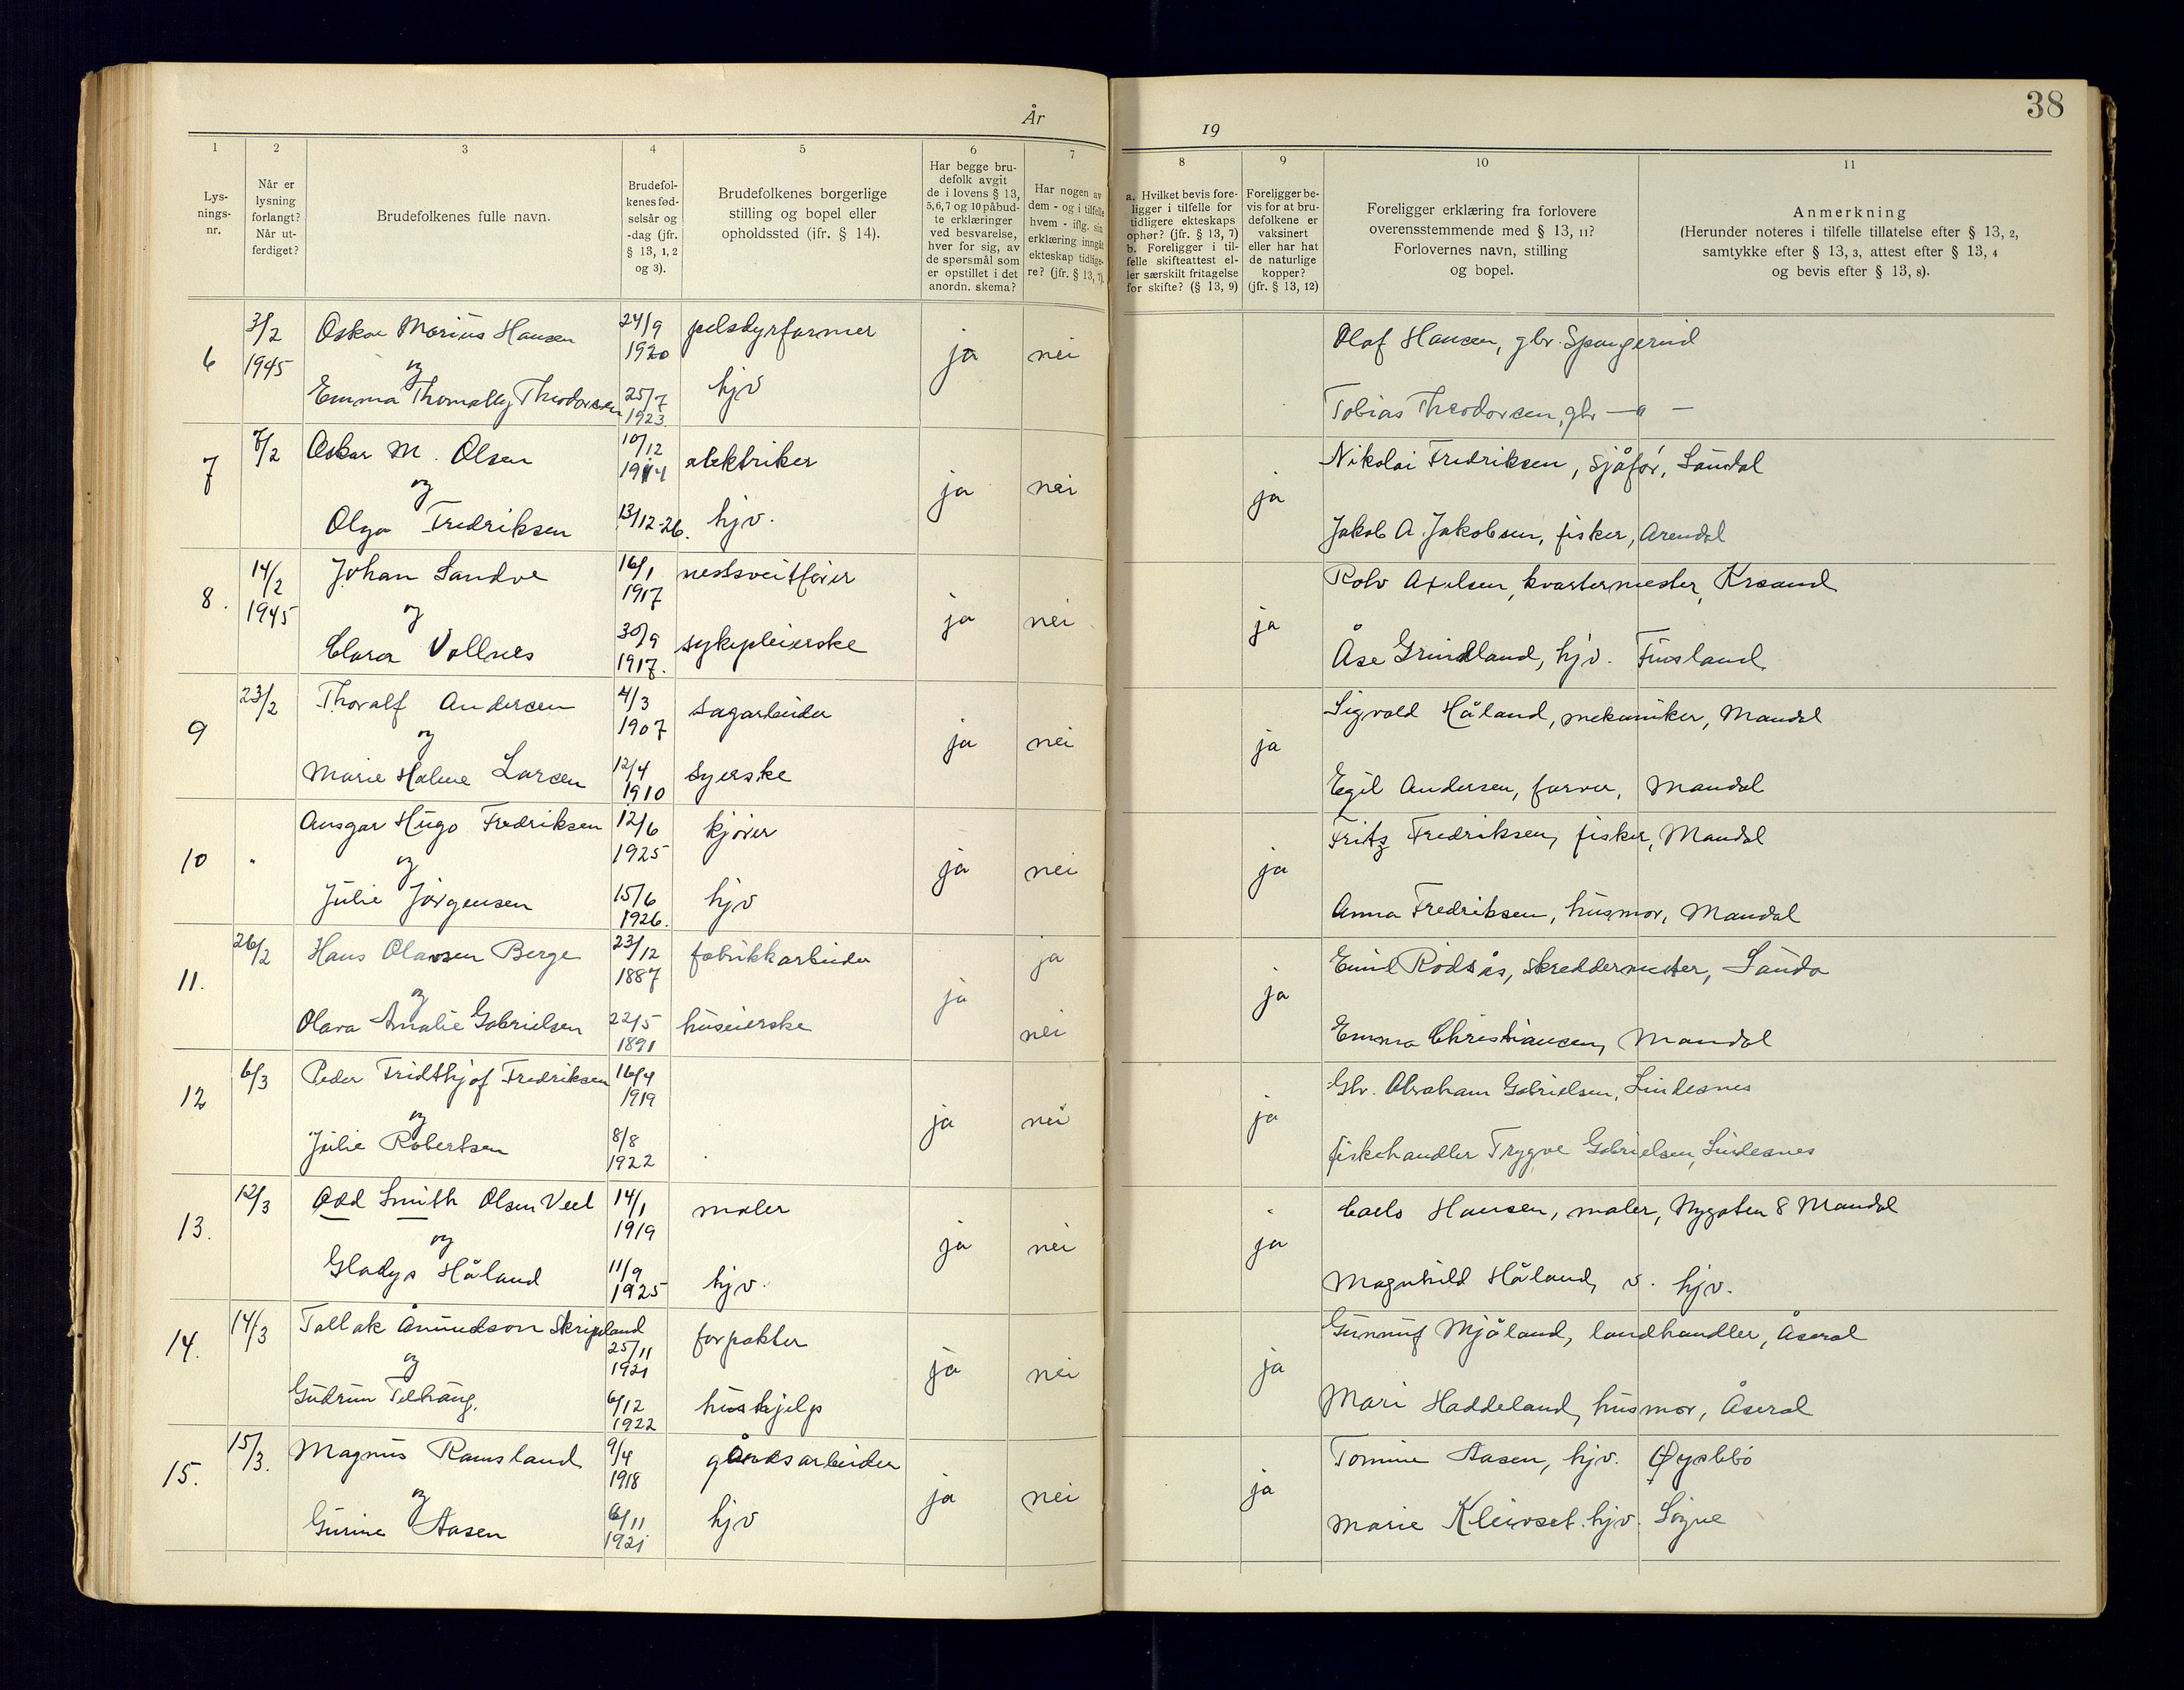 38
År
19
1 2 3 4 5 6 7 8 9 10 11
Lys-
nings-
nr.
Når er
lysning
forlangt?
Når ut-
ferdiget?
Brudefolkenes fulle navn.
Brudefol-
kenes fød-
selsår og
-dag (jfr.
§ 13, 1, 2
og 3).
Brudefolkenes borgerlige
stilling og bopel eller
opholdssted (jfr. § 14).
Har begge bru-
defolk avgit
de i lovens § 13,
5, 6, 7 og 10 påbud-
te erklæringer
ved besvarelse,
hver for sig, av
de spørsmål som
er opstillet i det
anordn. skema?
Har nogen av
dem - og i tilfelle
hvem - iflg. sin
erklæring inngåt
ekteskap tidlige-
re? (jfr. § 13, 7).
a. Hvilket bevis fore-
ligger i tilfelle for
tidligere ekteskaps
ophør? (jfr. § 13, 7)
b. Foreligger i til-
felle skifteattest el-
ler særskilt fritagelse
for skifte? (§ 13, 9)
Foreligger be-
vis for at bru-
defolkene er
vaksinert
eller har hat
de naturlige
kopper?
(jfr. § 13, 12)
Foreligger erklæring fra forlovere
overensstemmende med § 13, 11?
Forlovernes navn, stilling
og bopel.
Anmerkning
(Herunder noteres i tilfelle tillatelse efter § 13, 2,
samtykke efter § 13, 3, attest efter § 13, 4
og bevis efter § 13, 8).
6 3/2 1945 Oskar Marius Hansen 24/9 1920 pelsdyrfarmer ja nei Olaf Hansen, gbr. Spangereid
og
Emma Theodorsen 25/7 1923 hjv Tobias Theodorsen, gbr — " —
7 /2 Oskar M. Olsen 10/12 1914 elektriker ja nei ja Nikolai Fredriksen, sjåfør, Sandal
og
Olga Fredriksen 13/12-26. hjv. Jakob A. Jakobsen, fisker, Arendal
8. 14/2 1945 Johan Sandve 16/1 1917 ja nei ja Rolv Axelsen, kvartermester, Krsand
og
Clara Vollnes 30/9 1917. sykepleierske Åse Grindland, hjv. Finsland
9 23/2 Thoralf Andersen 4/3 1907 sagarbeider ja nei ja Sigvald Håland, mekaniker, Mandal
og
Marie Holme Larsen 12/4 1910 syerske Egil Andersen, farver, Mandal
10 " Ansgar Hugo Fredriksen 12/6 1925 kjører ja nei ja Fritz Fredriksen, fisker, Mandal
og
Julie Jørgensen 15/6 1926. hjv Anna Fredriksen, husmor, Mandal
11. 26/2 Hans Olavsen Berge 23/12 1887 fabrikkarbeider ja ja ja Emil Rødsås, skreddermester, Sanda
og
Olava Amalie Gabrielsen 22/5 1891 huseierske nei Emma Christiansen, Mandal
12 6/3 Peder Fridthjof Fredriksen 16/4 1919 ja nei ja Gbr. Abraham Gabrielsen, Lindesnes
og
Julie Robertsen 8/8 1922 fiskehandler Trygve Gabrielsen, Lindesnes
13. 12/3 Odd Smith Olsen Veel 14/1 1919 maler ja nei ja Carlo Hansen, maler, Nygaten 8 Mandal
og
Gladys Håland 11/9 1925 hjv. Magnhild Håland, v. hjv.
14. 14/3 Tallak Ånundson Skripeland 25/11 1921 forpakter ja nei ja Gunnuf Mjåland, landhandler, Åseral
og
Gudrun 6/12 1922 hushjelp Mari Haddeland, husmor, Åseral
15. 15/3. Magnus Ramsland 9/4 1918 gårdsarbeider ja nei ja Tomine Aasen, hjv. Øyslebø
og
Gurine Aasen 6/11 1921 hjv Marie Kleivset hjv. Søgne